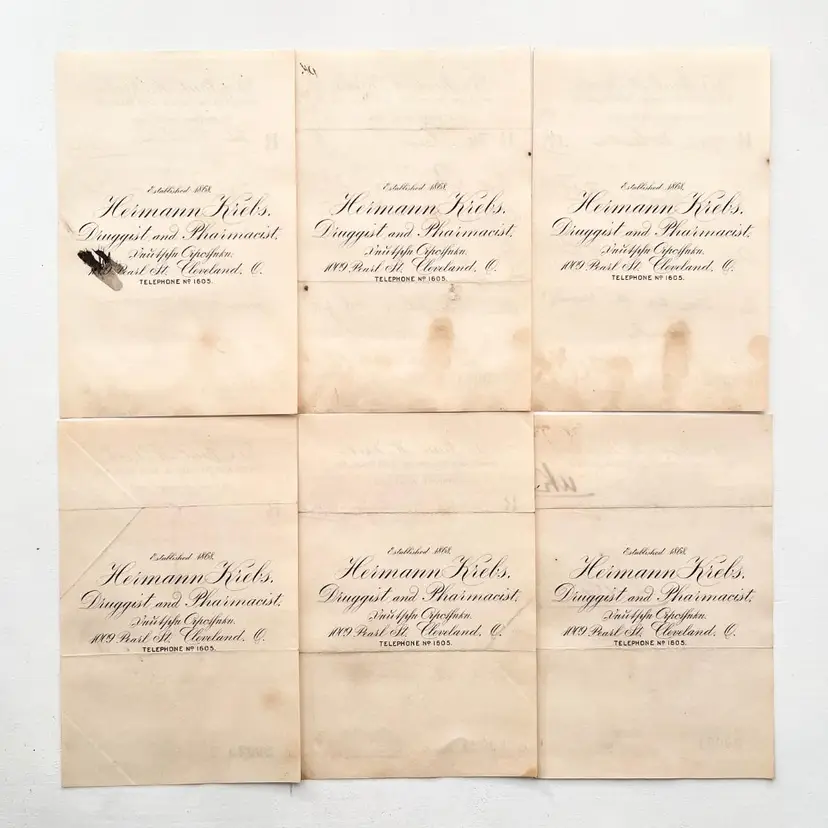 Established 1868.
Hermann Krebs.
Druggist and Pharmacist.
Deutsche Apotheke.
1009 Pearl St. Cleveland, O.
TELEPHONE Nº 1605.
Established 1868.
Hermann Krebs.
Druggist and Pharmacist.
Deutsche Apotheke.
1009 Pearl St. Cleveland, O.
TELEPHONE Nº 1605.
Established 1868.
Hermann Krebs.
Druggist and Pharmacist.
Deutsche Apotheke.
1009 Pearl St. Cleveland, O.
TELEPHONE Nº 1605.
Established 1868.
Hermann Krebs.
Druggist and Pharmacist.
Deutsche Apotheke.
1009 Pearl St. Cleveland, O.
TELEPHONE Nº 1605.
Established 1868.
Hermann Krebs.
Druggist and Pharmacist.
Deutsche Apotheke.
1009 Pearl St. Cleveland, O.
TELEPHONE Nº 1605.
Established 1868.
Hermann Krebs.
Druggist and Pharmacist.
Deutsche Apotheke.
1009 Pearl St. Cleveland, O.
TELEPHONE Nº 1605.